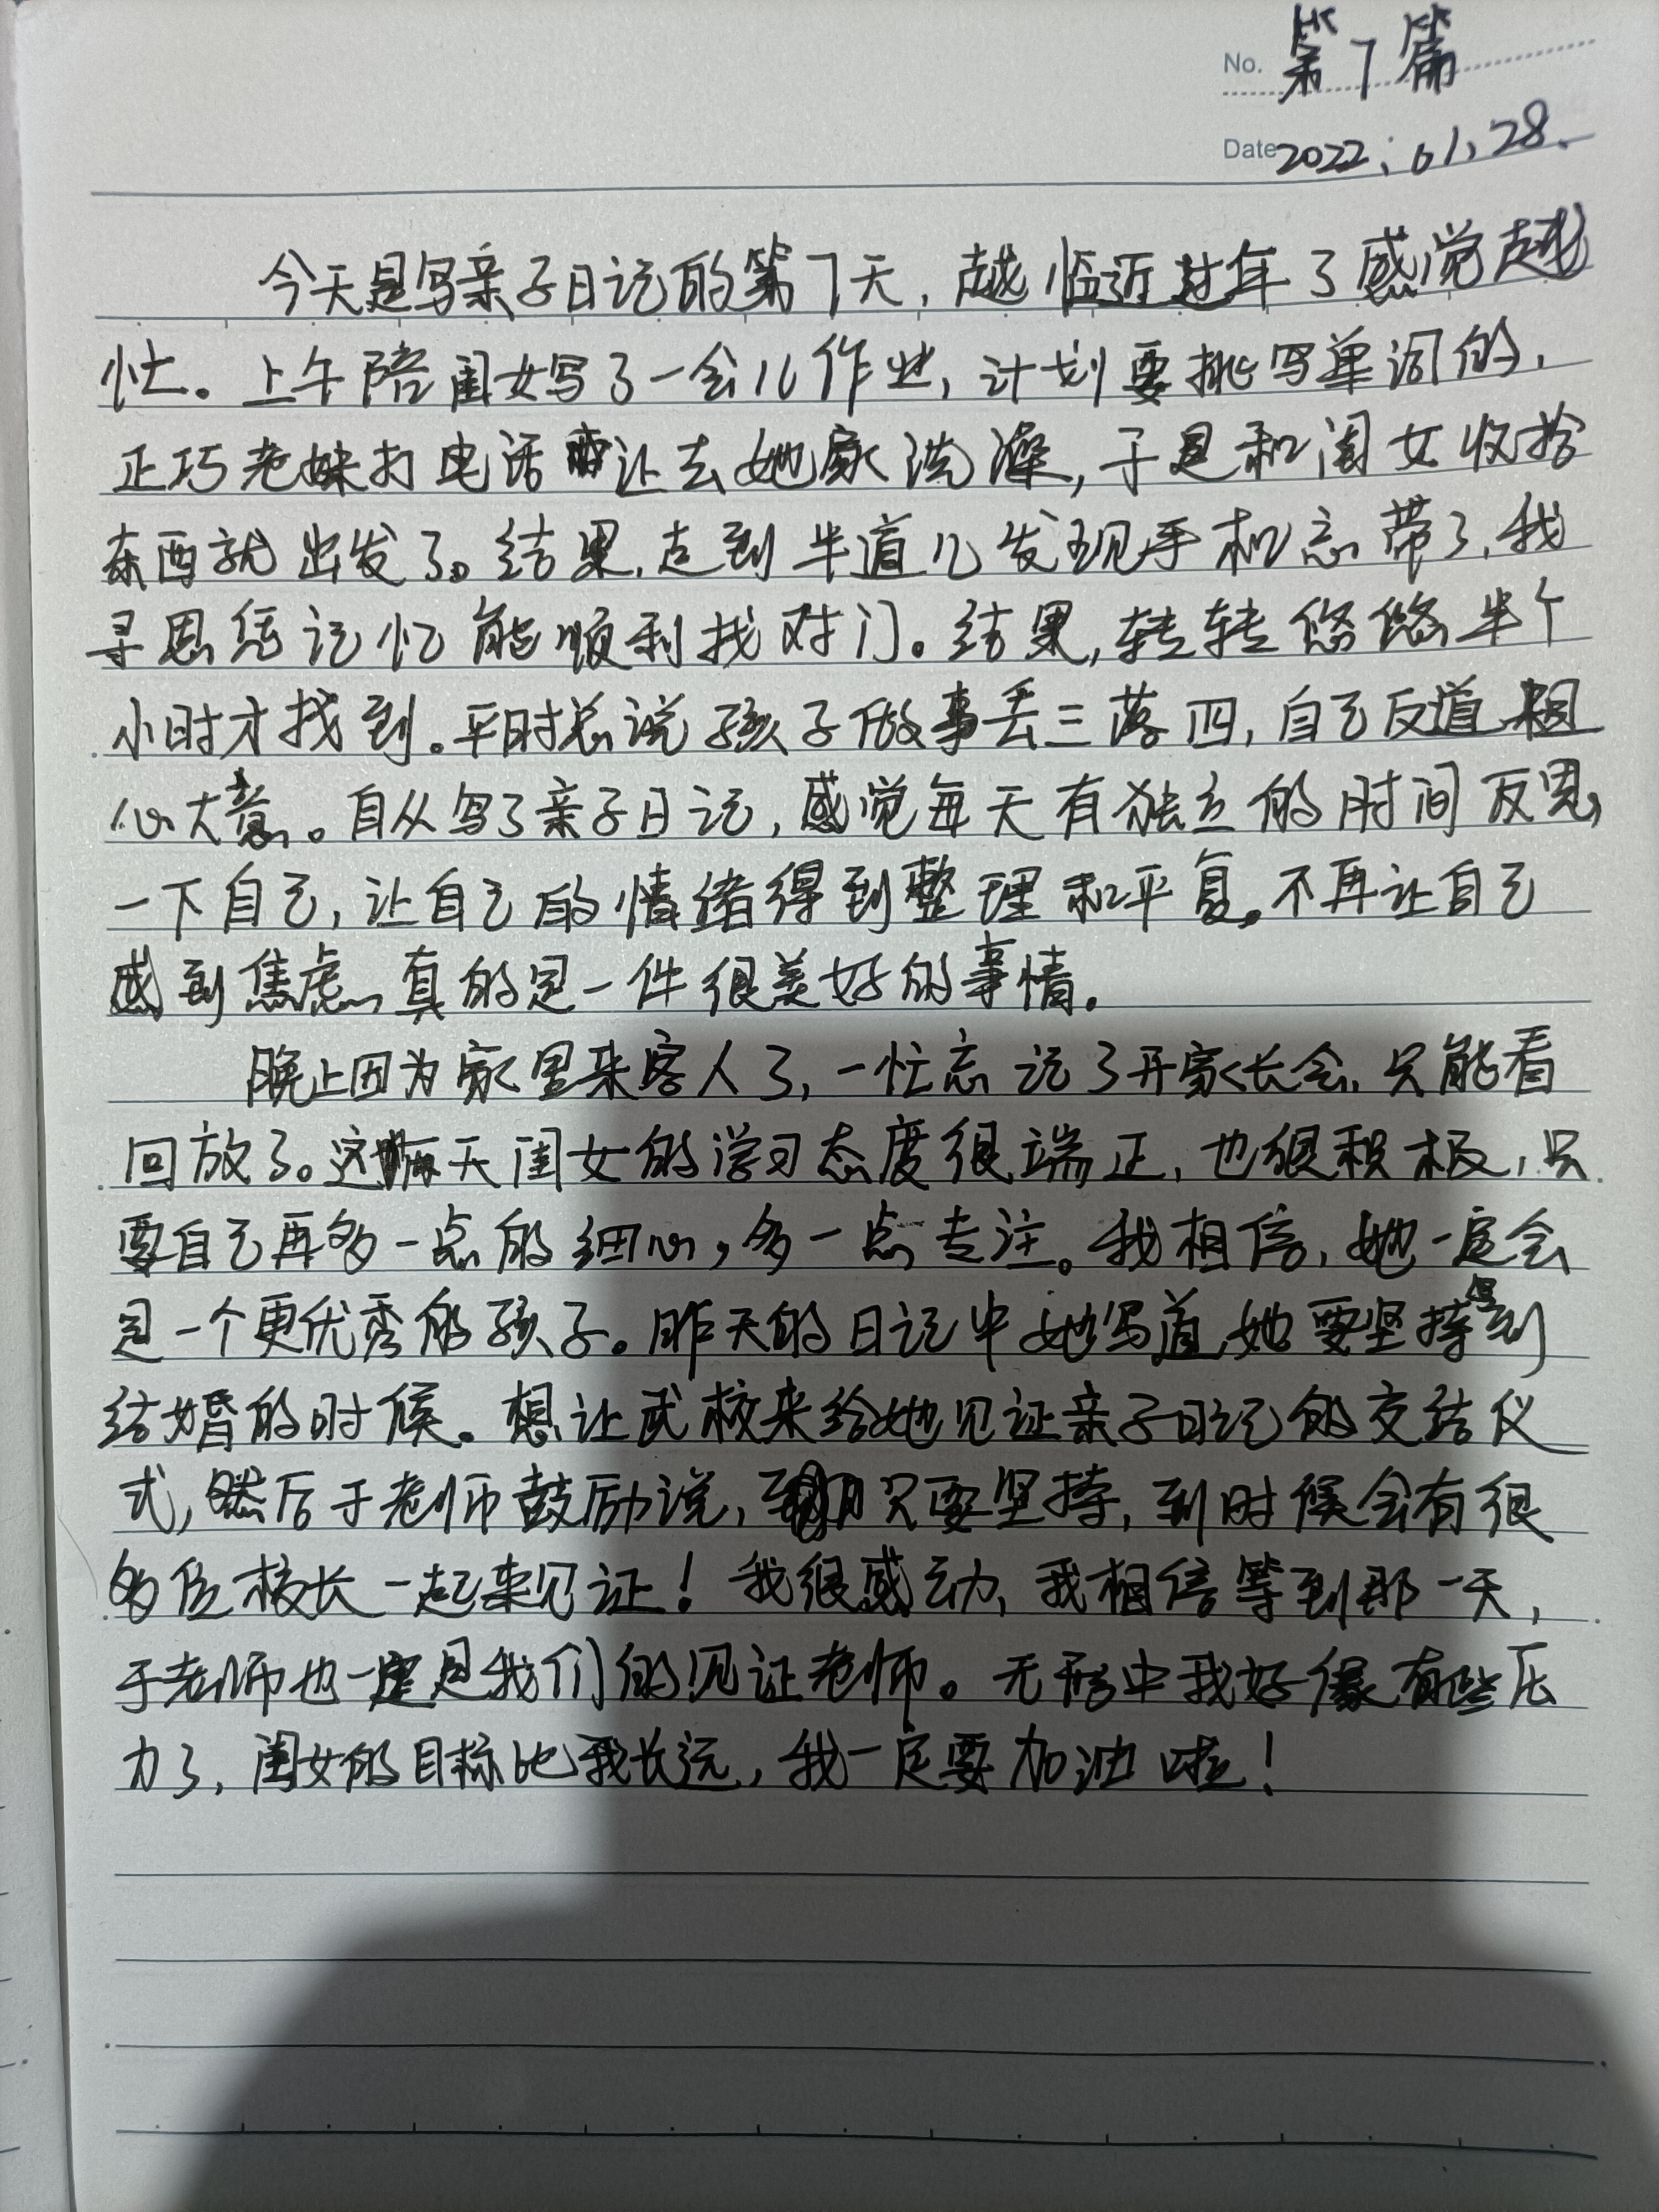 No. 第7篇
Date 2022.01.28.
今天是写亲子日记的第7天，越临近过年了感觉越
忙。上午陪闺女写了一会儿作业，计划要挑写单词的，
正巧老妹打电话让去她家洗澡，于是和闺女收拾
东西就出发了。结果，走到半道儿发现手机忘带了，我
寻思凭记忆能顺利找对门。结果，转转悠悠半个
小时才找到。平时总说孩子做事丢三落四，自己反道粗
心大意。自从写了亲子日记，感觉每天有独立的时间反思
一下自己，让自己的情绪得到整理和平复。不再让自己
感到焦虑，真的是一件很美好的事情。
晚上因为家里来客人了，一忙忘记了开家长会，只能看
回放了。这两天闺女的学习态度很端正，也很积极，只
要自己再多一点的细心，多一点专注。我相信，她一定会
是一个更优秀的孩子。昨天的日记中她写道，她要坚持写到
结婚的时候。想让武校来给她见证亲子日记的交结仪
式，然后于老师鼓励说，只要坚持，到时候会有很
多位校长一起来见证！我很感动，我相信等到那一天，
于老师也一定是我们的见证老师。无形中我好像有些压
力了，闺女的目标比我长远，我一定要加油啦！